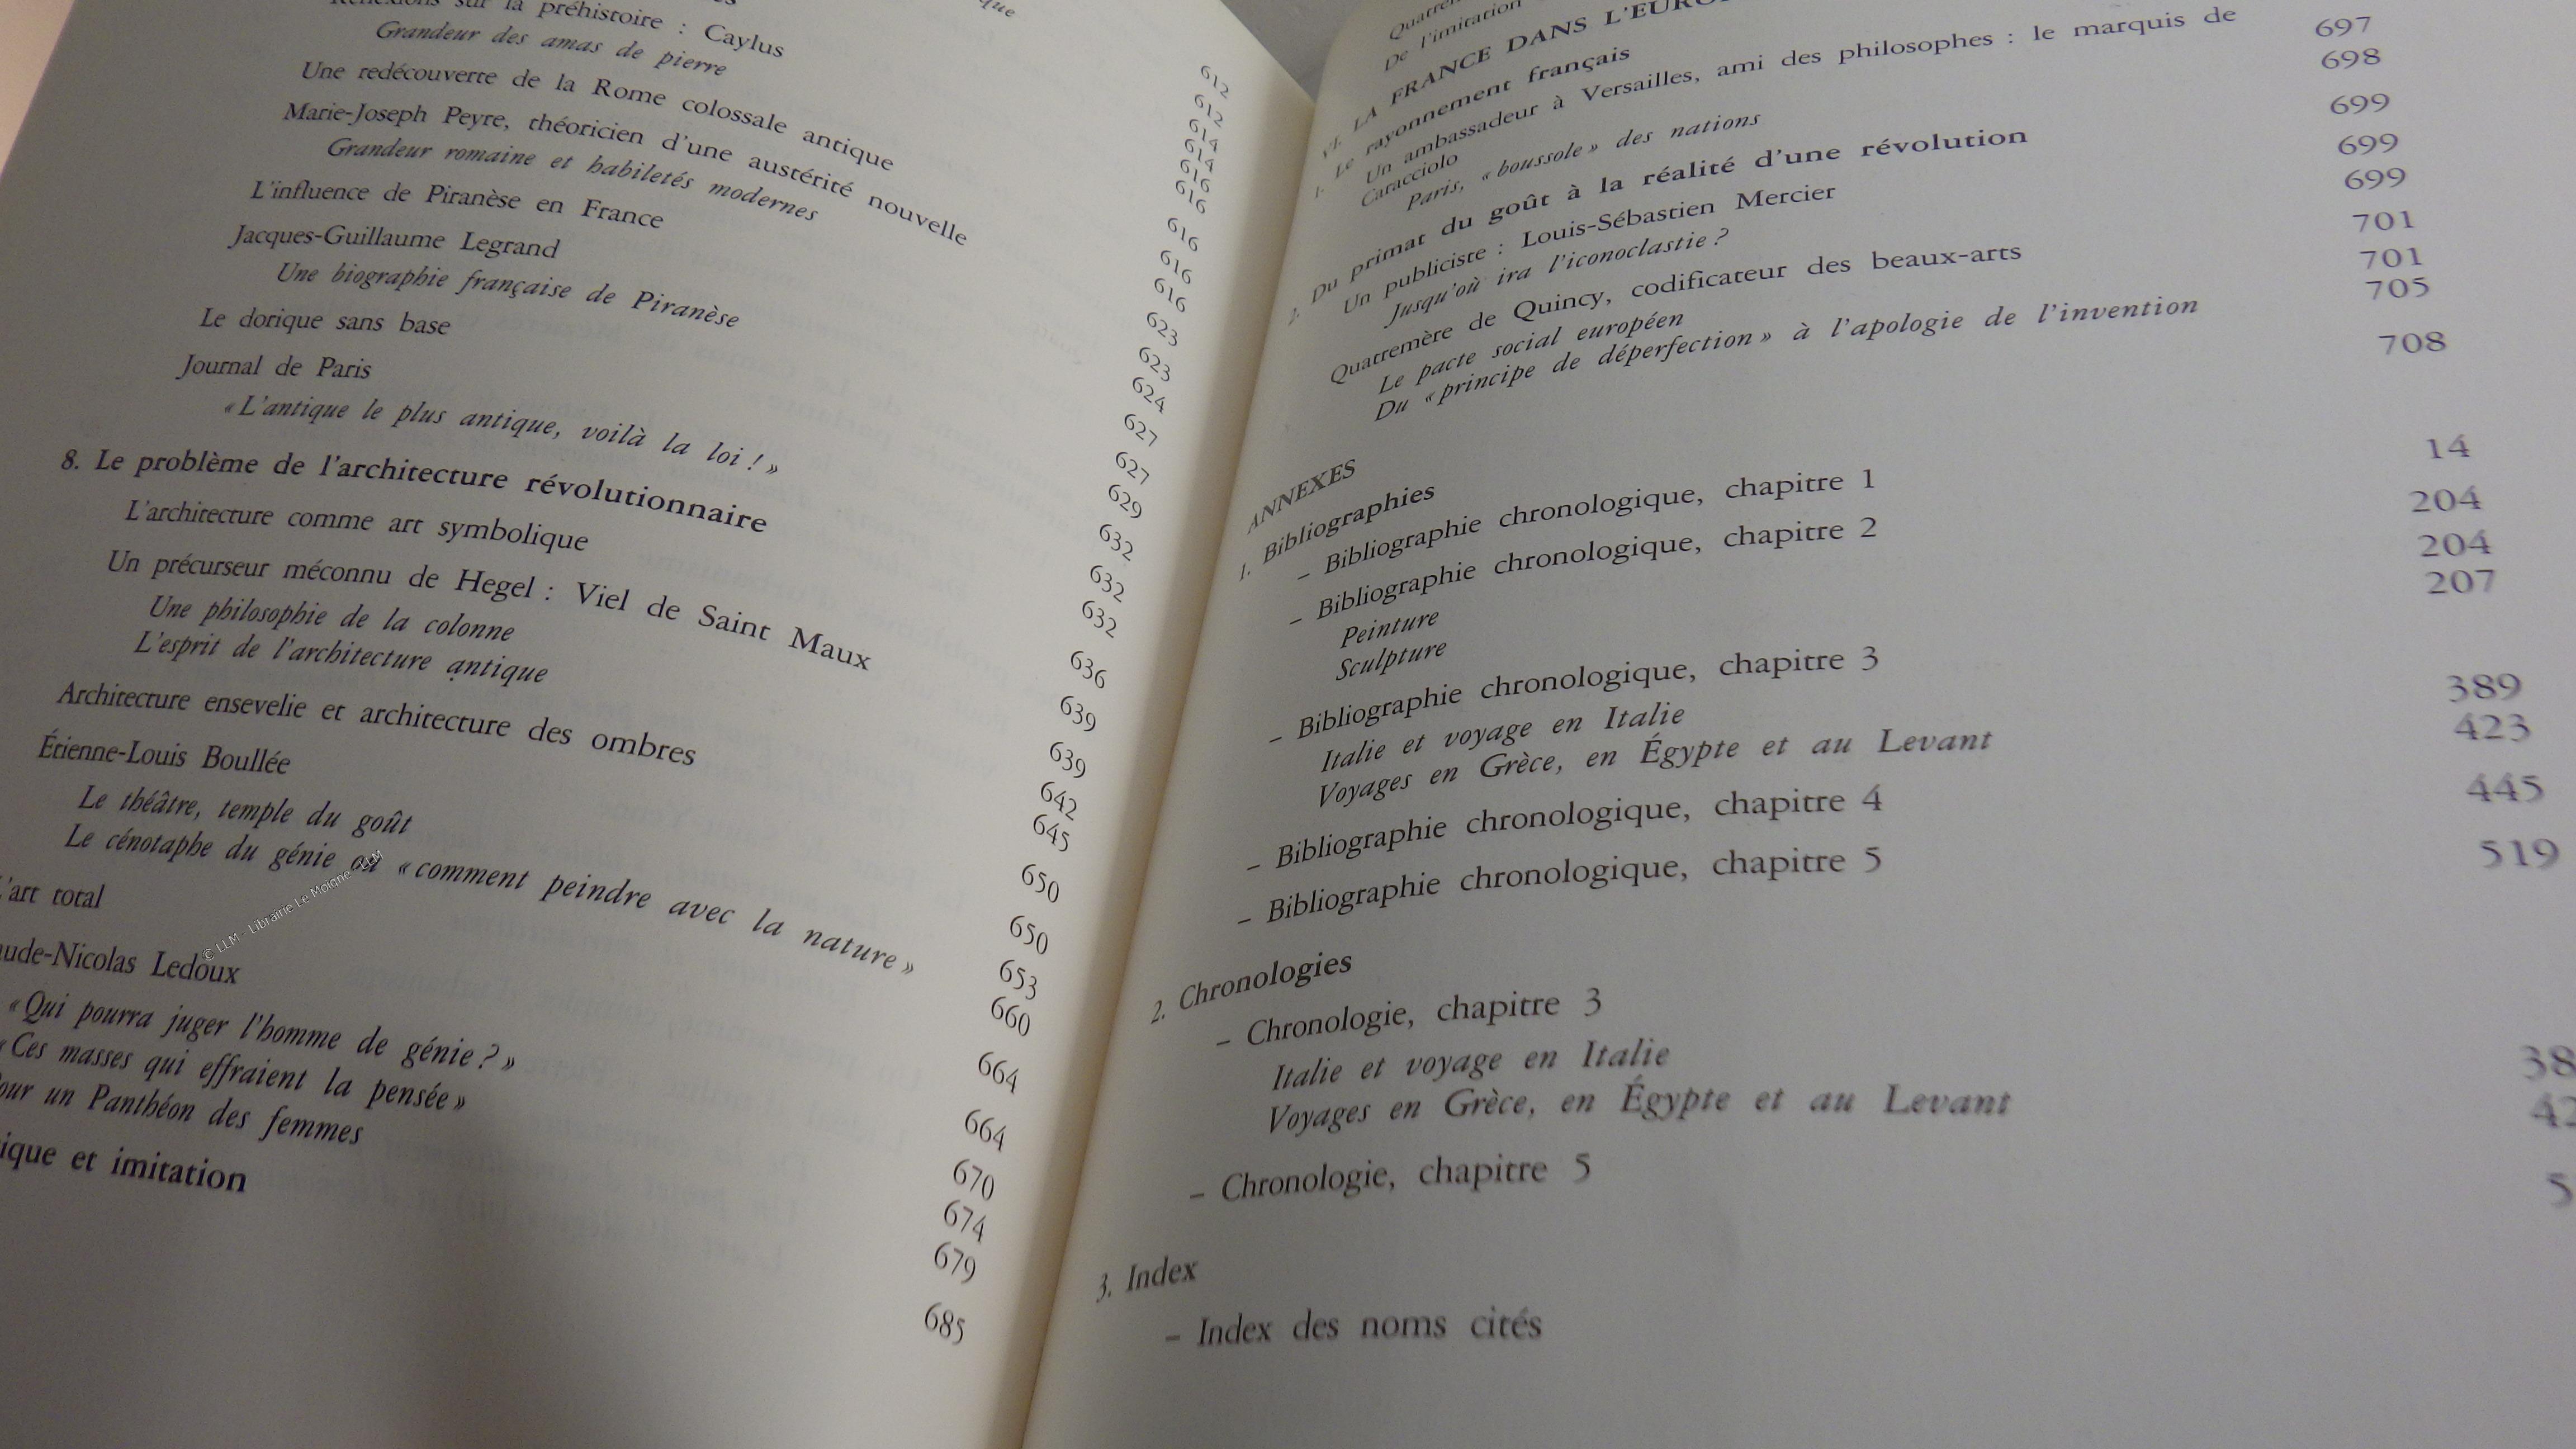 sur la préhistoire : Caylus
Grandeur des amas de pierre
Une redécouverte de la Rome colossale antique
Marie-Joseph Peyre, théoricien d'une austérité nouvelle
Grandeur romaine et habiletés modernes
L'influence de Piranèse en France
Jacques-Guillaume Legrand
Une biographie française de Piranèse
Le dorique sans base
Journal de Paris
« L'antique le plus antique, voilà la loi ! »
8. Le problème de l'architecture révolutionnaire
L'architecture comme art symbolique
Un précurseur méconnu de Hegel : Viel de Saint Maux
Une philosophie de la colonne
L'esprit de l'architecture antique
Architecture ensevelie et architecture des ombres
Étienne-Louis Boullée
Le théâtre, temple du goût
Le cénotaphe du génie ou « comment peindre avec la nature »
'art total
ude-Nicolas Ledoux
« Qui pourra juger l'homme de génie ? »
« Ces masses qui effraient la pensée »
our un Panthéon des femmes
ique et imitation
612
612
614
614
616
616
616
616
616
623
623
624
627
627
629
632
632
632
636
639
639
642
645
650
650
653
660
664
664
670
674
679
685
© LLM - Librairie Le Moigne - LLM
De l'imitation
VI. LA FRANCE DANS L'EURO
1. Le rayonnement français
Un ambassadeur à Versailles, ami des philosophes : le marquis de
Caracciolo
Paris, « boussole » des nations
2. Du primat du goût à la réalité d'une révolution
Un publiciste : Louis-Sébastien Mercier
Jusqu'où ira l'iconoclastie ?
Quatremère de Quincy, codificateur des beaux-arts
Le pacte social européen
Du « principe de déperfection » à l'apologie de l'invention
697
698
699
699
699
701
701
705
708
ANNEXES
1. Bibliographies
– Bibliographie chronologique, chapitre 1 14
– Bibliographie chronologique, chapitre 2 204
Peinture 204
Sculpture 207
– Bibliographie chronologique, chapitre 3
Italie et voyage en Italie 389
Voyages en Grèce, en Égypte et au Levant 423
– Bibliographie chronologique, chapitre 4 445
– Bibliographie chronologique, chapitre 5 519
2. Chronologies
– Chronologie, chapitre 3
Italie et voyage en Italie 38
Voyages en Grèce, en Égypte et au Levant 42
– Chronologie, chapitre 5 5
3. Index
– Index des noms cités